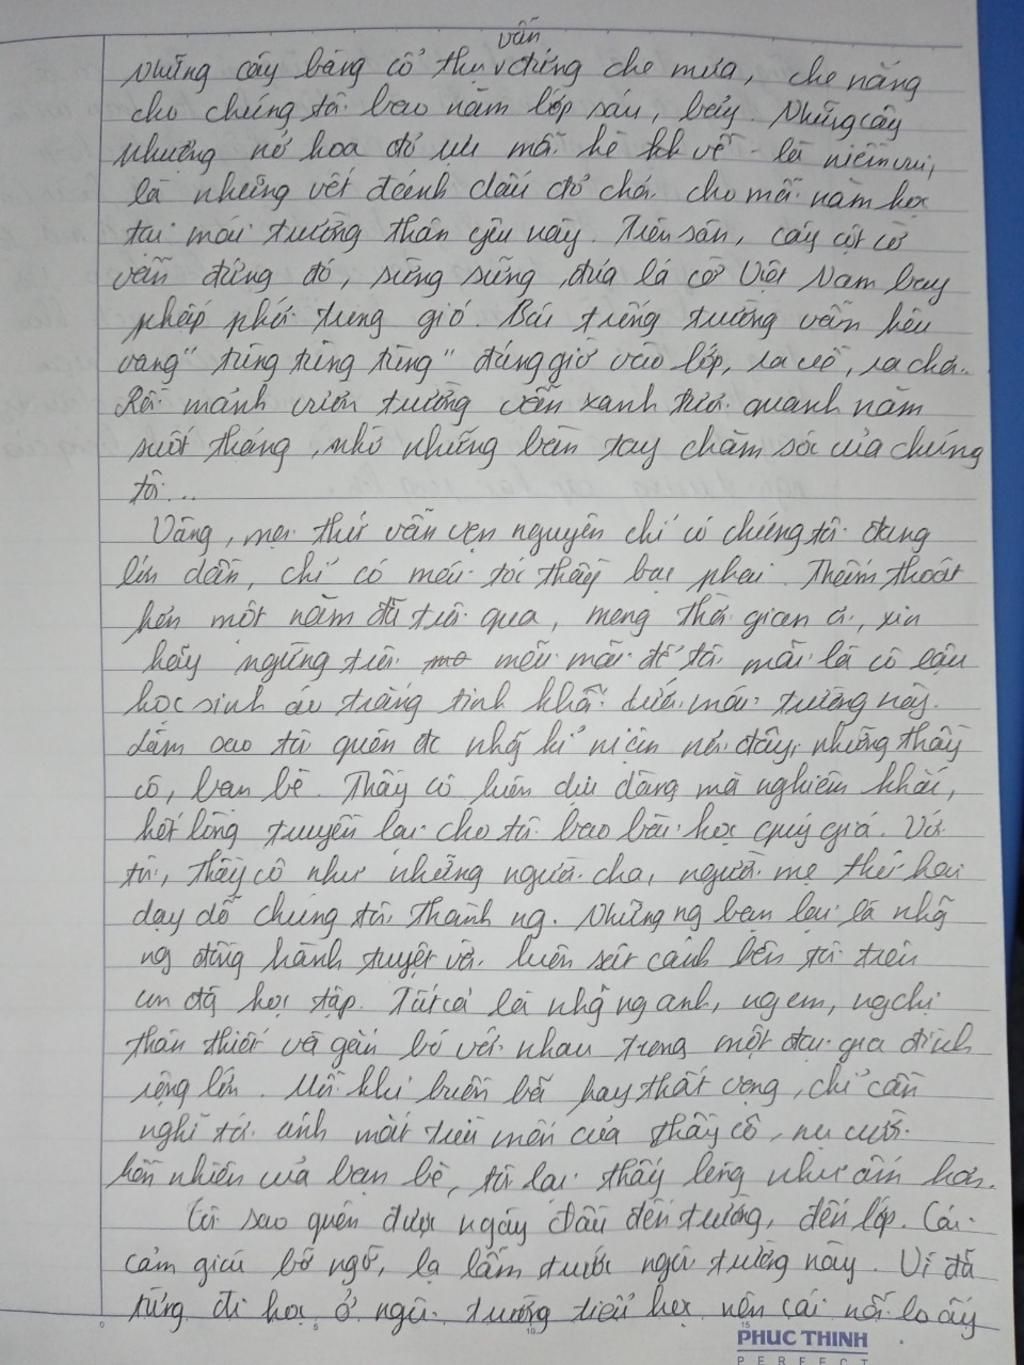 vẫn
Những cây bàng cổ thụ v đứng che mưa, che nắng
cho chúng tôi bao năm lớp sáu, bảy. Những cây
phượng nở hoa đỏ rực mỗi hè kh về - là niềm vui,
là những vết đánh dấu đỏ chói cho mỗi năm học
tại mái trường thân yêu này. Trên sân, cây cột cờ
vẫn đứng đó, sừng sững, đưa lá cờ Việt Nam bay
phấp phới trong gió. Bác trống trường vẫn kêu
vang "tùng tùng tùng" đúng giờ vào lớp, ra về, ra chơi.
Rồi mảnh vườn trường vẫn xanh tươi quanh năm
suốt tháng, nhờ những bàn tay chăm sóc của chúng
tôi...
Vâng, mọi thứ vẫn vẹn nguyên chỉ có chúng tôi đang
lớn dần, chỉ có mái tóc thầy bạc phai. Thấm thoát
hơn một năm đã trôi qua, mong thời gian ơi, xin
hãy ngừng trôi mãi mãi để tôi mãi là cô cậu
học sinh áo trắng tinh khôi dưới mái trường này.
Làm sao tôi quên đc nhg kỉ niệm nơi đây, những thầy
cô, bạn bè. Thầy cô luôn dịu dàng mà nghiêm khắc,
hết lòng truyền lại cho tôi bao bài học quý giá. Với
tôi, thầy cô như những người cha, người mẹ thứ hai
dạy dỗ chúng tôi thành ng. Những ng bạn lại là nhg
ng đồng hành tuyệt vời luôn sát cánh bên tôi trên
con đg học tập. Tất cả là nhg ng anh, ng em, ng chị
thân thiết và gắn bó với nhau trong một đại gia đình
rộng lớn. Mỗi khi buồn bã hay thất vọng, chỉ cần
nghĩ tới ánh mắt trìu mến của thầy cô, nụ cười
hồn nhiên của bạn bè, tôi lại thấy lòng như ấm hơn.
Tôi sao quên được ngày đầu đến trường, đến lớp. Cái
cảm giác bỡ ngỡ, lạ lẫm trước ngôi trường này. Vì đã
từng đi học ở ngôi trường tiểu học nên cái nỗi lo ấy
PHUC THINH
PERFECT